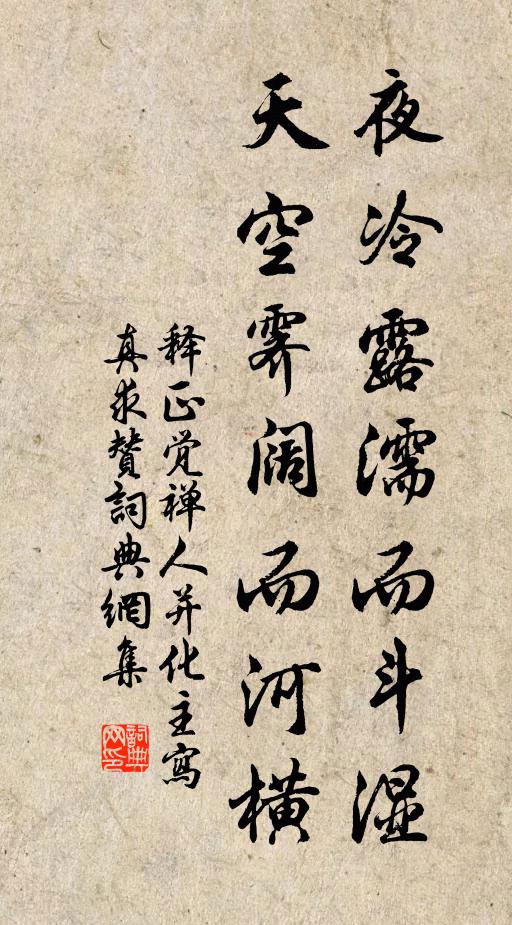 夜冷露濡而斗湿
天空霁阔而河横
释正觉禅人并化主寫
真求贊詞典網集
詞典网印